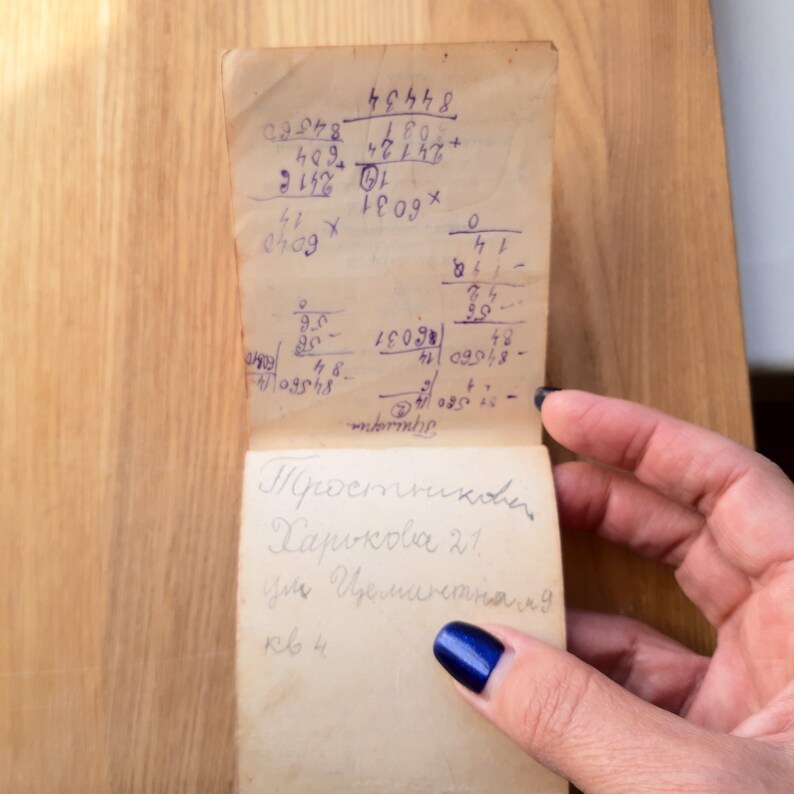 - 84560 | 14 - 84560 | 14
84 6031 84
- 56 - 56
42 56
14 0
0
× 6031 × 6040
14 14
24124 2416
+ 6031 + 604
84434 84560
Тростникова
Харькова 21
ул Цементная 9
кв 4